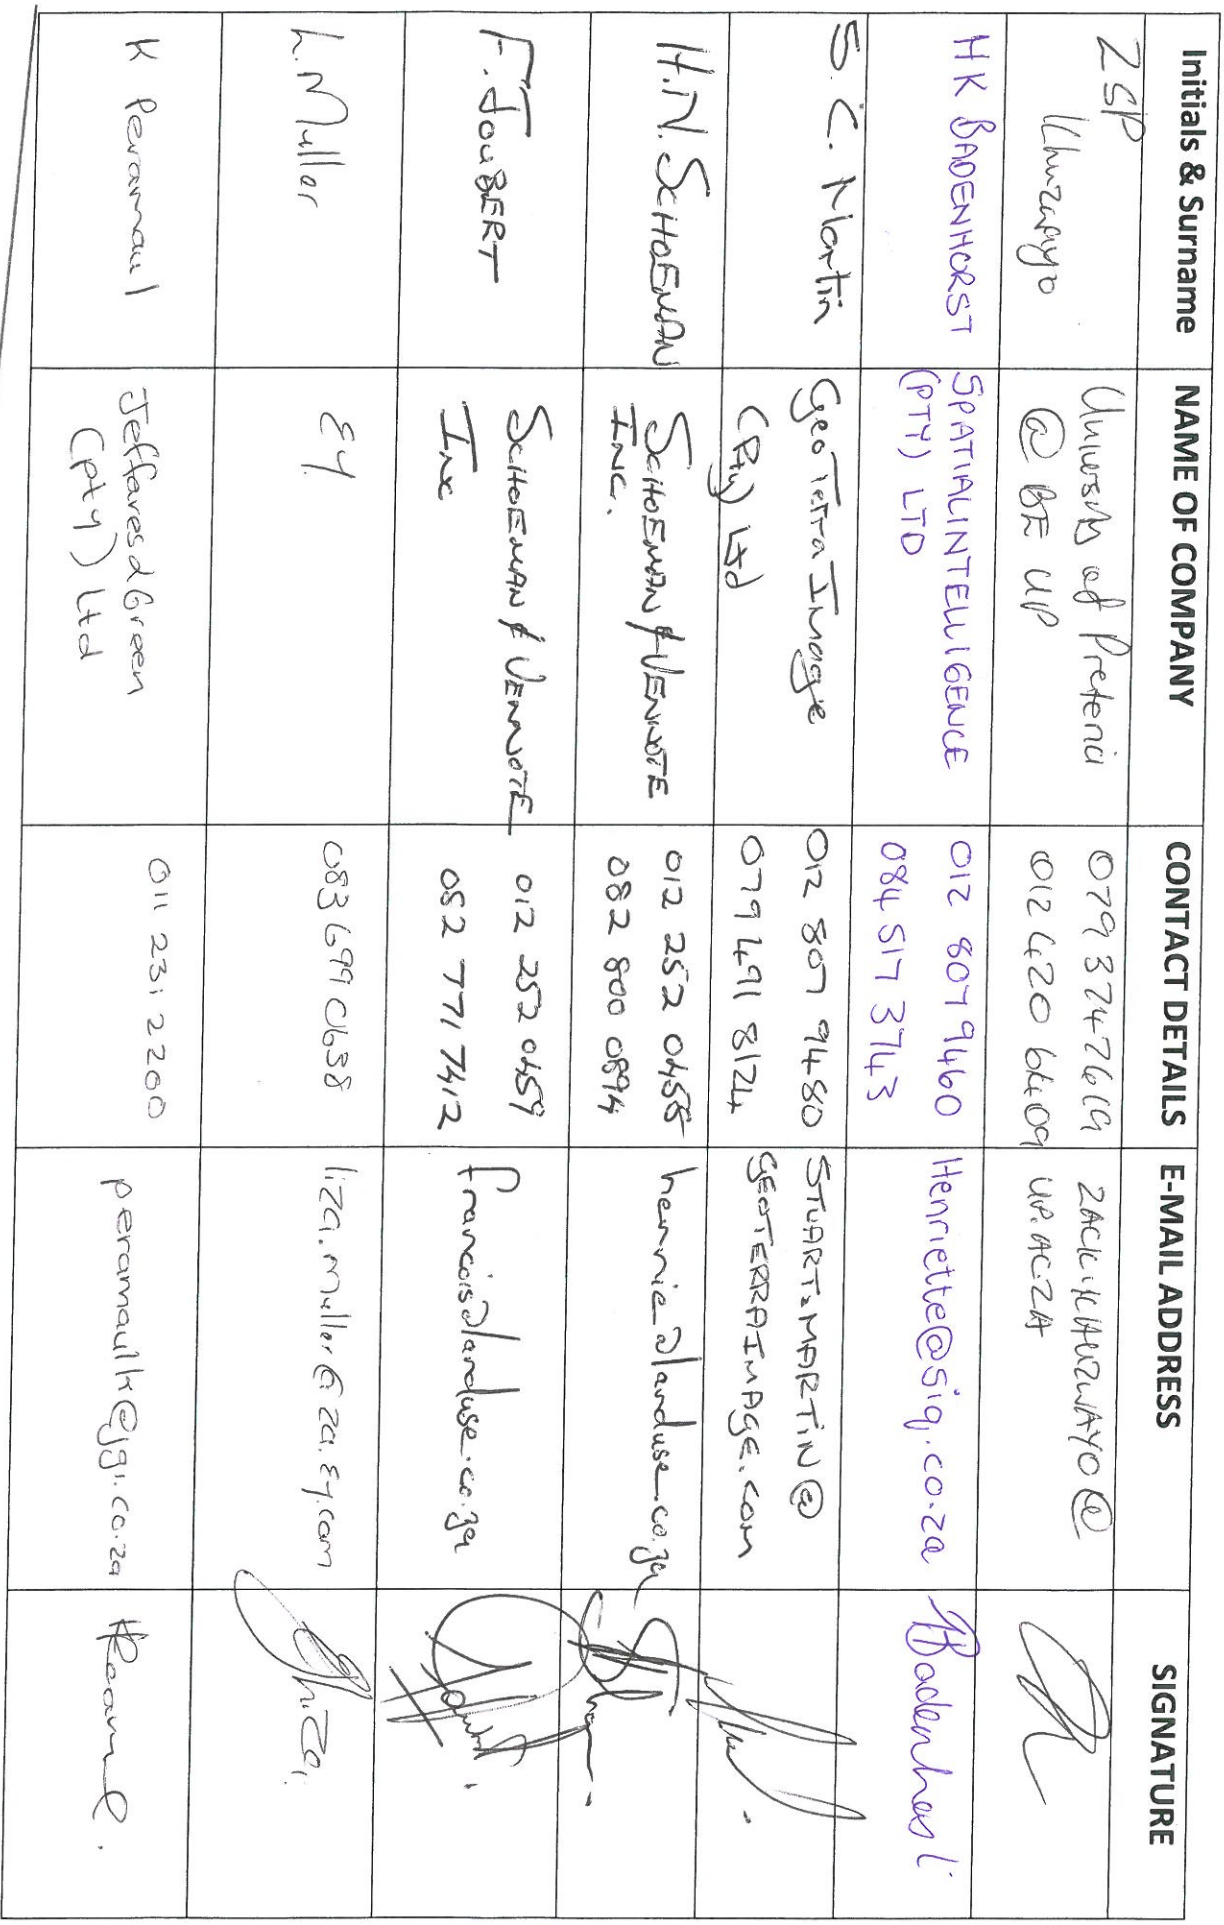 Initials & Surname NAME OF COMPANY CONTACT DETAILS E-MAIL ADDRESS SIGNATURE
ZSP
Khuzwayo
University of Pretoria
@ BE UP
079 3747619
012 420 6409
ZACK.KHUZWAYO@
UP.AC.ZA
HK BADENHORST
SPATIALINTELLIGENCE
(PTY) LTD
012 807 9460
084 517 3743
Henriette@siq.co.za
S. C. Martin
GeoTerraImage
(Pty) Ltd
012 807 9480
079 491 8124
STUART.MARTIN@
GEOTERRAIMAGE.com
H.N. SCHOEMAN
SCHOEMAN & VENNOTE
INC.
012 252 0458
082 800 0894
hennie@landuse.co.za
F. JOUBERT
SCHOEMAN & VENNOTE
INC
012 252 0459
082 771 7412
francois@landuse.co.za
L. Muller
EY
083 699 0638
liza.muller@za.ey.com
K Peramaul
Jeffares&Green
(pty) Ltd
011 231 2200
peramaulk@jgi.co.za